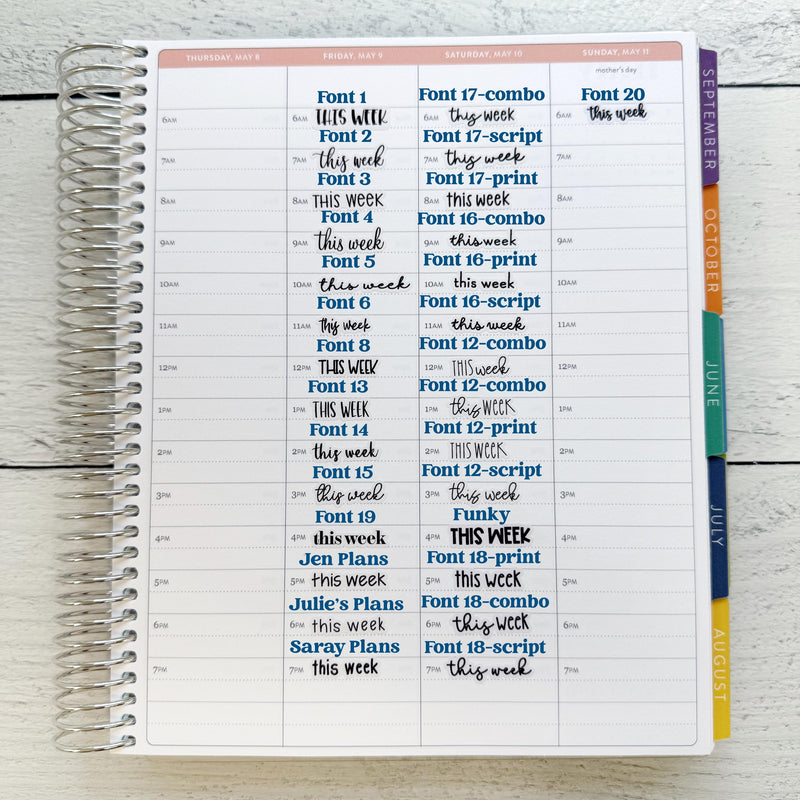 THURSDAY, MAY 8
FRIDAY, MAY 9
SATURDAY, MAY 10
SUNDAY, MAY 11
mother's day
Font 1
Font 17-combo
Font 20
6AM THIS WEEK
6AM this week
6AM this week
Font 2
Font 17-script
6AM
7AM this week
7AM this week
7AM
Font 3
Font 17-print
7AM
8AM THIS WEEK
8AM this week
8AM
Font 4
Font 16-combo
8AM
9AM this week
9AM this week
9AM
Font 5
Font 16-print
9AM
10AM this week
10AM this week
10AM
Font 6
Font 16-script
10AM
11AM this week
11AM this week
11AM
Font 8
Font 12-combo
11AM
12PM THIS WEEK
12PM THIS week
12PM
Font 13
Font 12-combo
12PM
1PM THIS WEEK
1PM this WEEK
1PM
Font 14
Font 12-print
1PM
2PM this week
2PM THIS WEEK
2PM
Font 15
Font 12-script
2PM
3PM this week
3PM this week
3PM
Font 19
Funky
3PM
4PM this week
4PM THIS WEEK
4PM
Jen Plans
Font 18-print
4PM
5PM this week
5PM this week
5PM
Julie's Plans
Font 18-combo
5PM
6PM this week
6PM this WEEK
6PM
Saray Plans
Font 18-script
6PM
7PM this week
7PM this week
7PM
7PM
SEPTEMBER
OCTOBER
JUNE
JULY
AUGUST